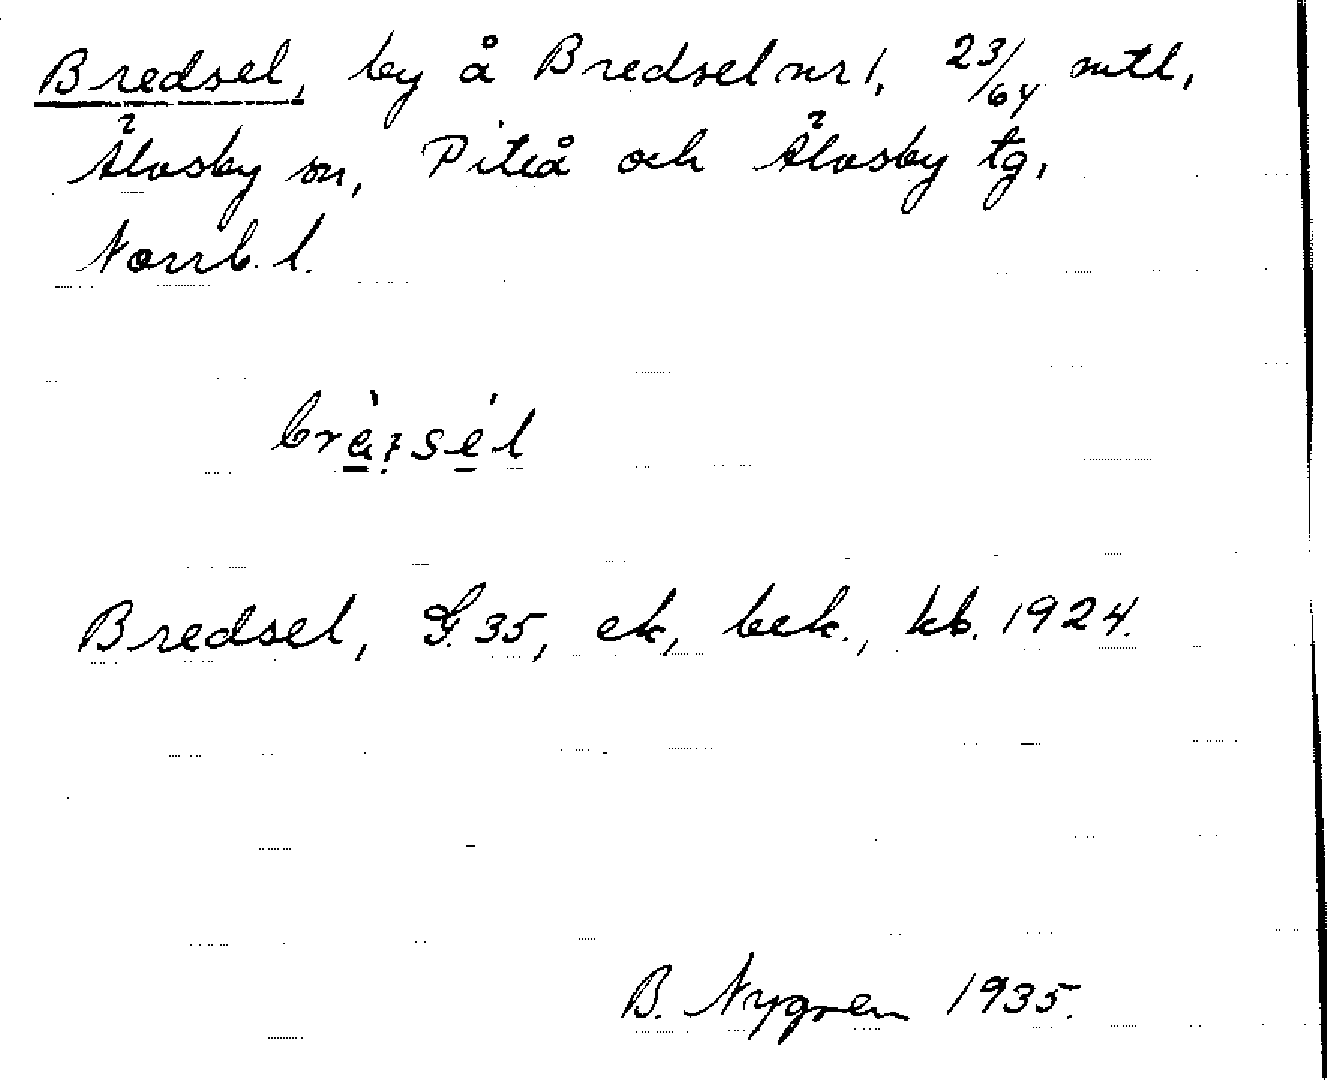 Bredsel, by å Bredsel nr 1, 23/64 mtl,
Älvsby sn, Piteå och Älvsby tg,
Norrb. l.
Bredsel, G. 35, ek, bek., kb. 1924.
B. Nygren 1935.